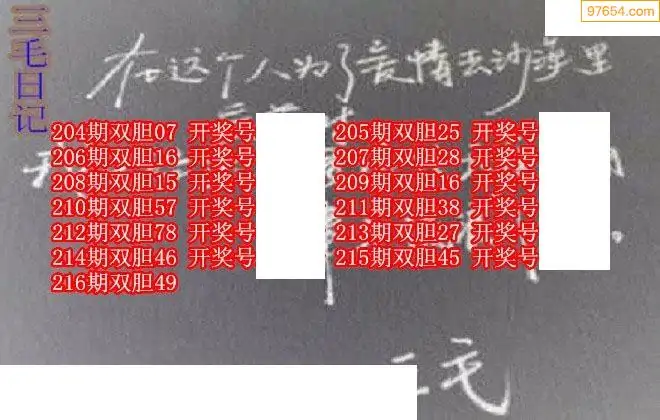 97654.com
三毛日记
在这个人为了爱情去沙漠里
204期双胆07 开奖号 205期双胆25 开奖号
206期双胆16 开奖号 207期双胆28 开奖号
208期双胆15 开奖号 209期双胆16 开奖号
210期双胆57 开奖号 211期双胆38 开奖号
212期双胆78 开奖号 213期双胆27 开奖号
214期双胆46 开奖号 215期双胆45 开奖号
216期双胆49
三毛